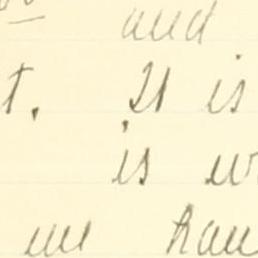 and
t. It is
is w
me hau